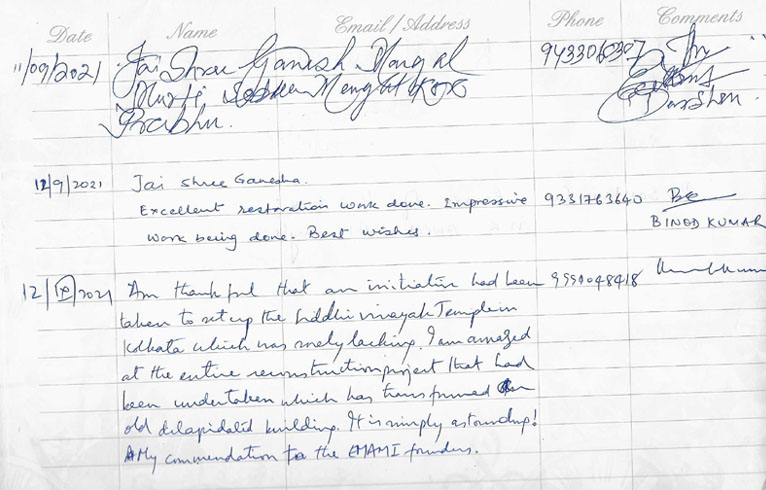 Date Name Email/Address Phone Comments
11/09/2021 Jai Shree Ganesh Mangal 9433060307
Murti
Prabhu. Darshan.
12/9/2021 Jai Shree Ganesha.
Excellent restoration work done. Impressive 9331763640
work being done. Best wishes. BINOD KUMAR
12/ /2021 Am thankful that an initiative had been 9990048418
taken to set up the Siddhi vinayak Temple in
Kolkata which was sorely lacking. I am amazed
at the entire reconstruction project that had
been undertaken which has transformed an
old dilapidated building. It is simply astounding!
My commendation to the EMAMI founders.